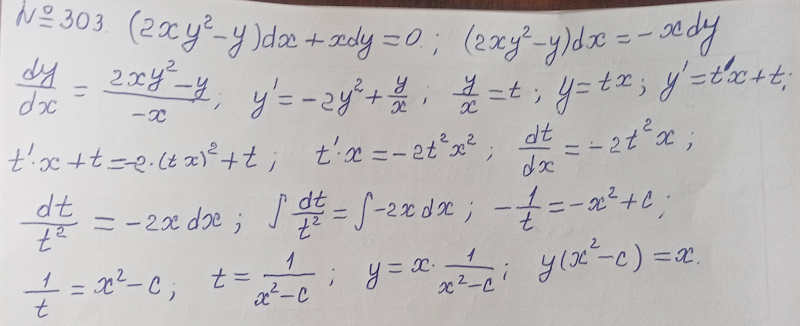 №303. (2xy²-y)dx+xdy=0.; (2xy²-y)dx=-xdy
dy/dx = (2xy²-y)/(-x); y'=-2y²+y/x; y/x=t; y=tx; y'=t'x+t;
t'·x+t=-2·(tx)²+t; t'·x=-2t²x²; dt/dx=-2t²x;
dt/t² = -2x dx; ∫dt/t²=∫-2x dx; -1/t=-x²+c;
1/t = x²-c; t=1/(x²-c); y=x·1/(x²-c); y(x²-c)=x.